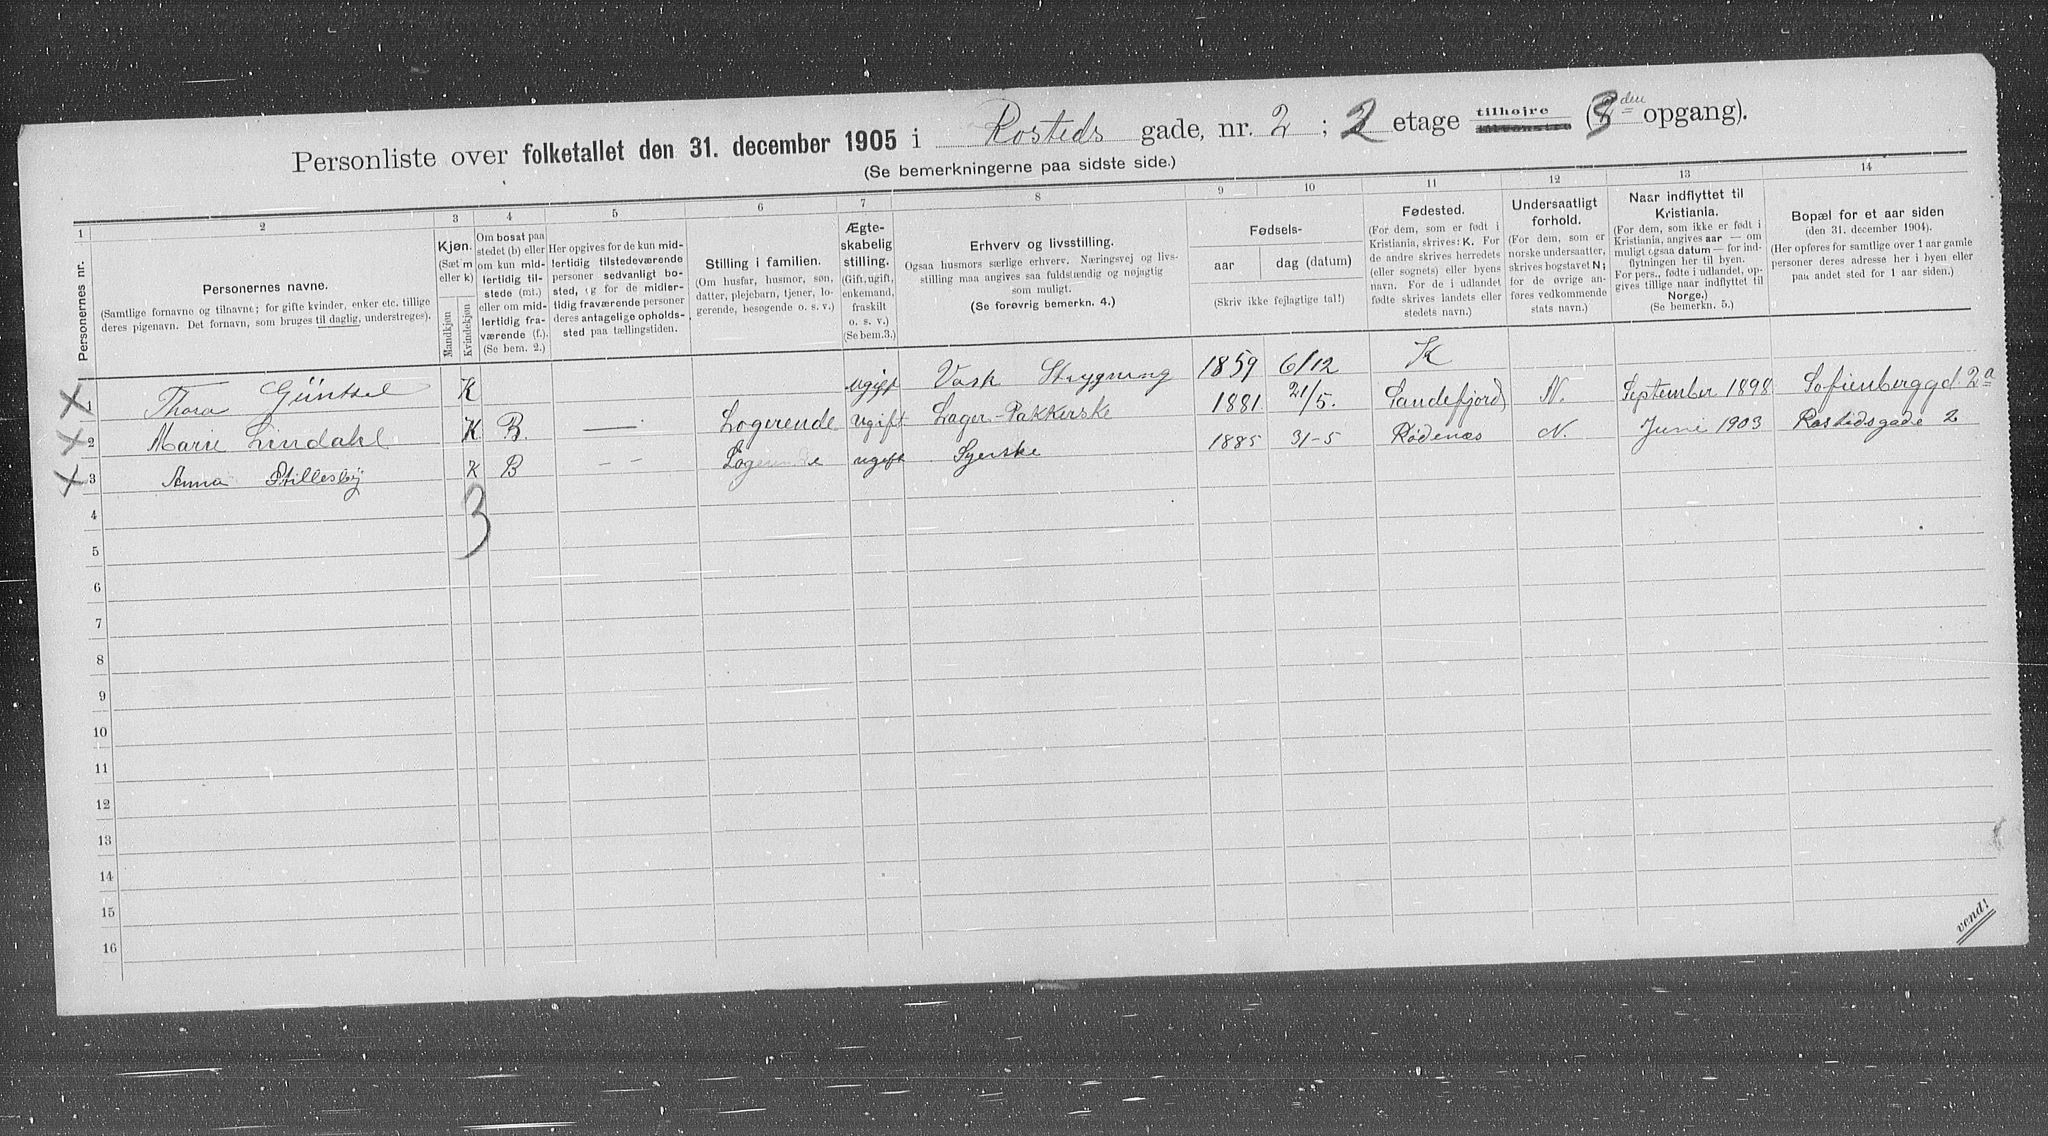 Personliste over folketallet den 31. december 1905 i Rosteds gade, nr. 2 ; 2 etage tilhøjre (3 den opgang).
(Se bemerkningerne paa sidste side.)
1 2 3 4 5 6 7 8 9 10 11 12 13 14
Personernes nr.
Personernes navne.
(Samtlige fornavne og tilnavne; for gifte kvinder, enker etc. tillige
deres pigenavn. Det fornavn, som bruges til daglig, understreges).
Kjøn.
(Sæt m
eller k)
Mandkjøn
Kvindekjøn
Om bosat paa
stedet (b) eller
om kun mid-
lertidig til-
stede (mt.)
eller om mid-
lertidig fra-
værende (f.).
(Se bem. 2.)
Her opgives for de kun mid-
lertidig tilstedeværende
personer sedvanligt bo-
sted, og for de midler-
tidig fraværende personer
deres antagelige opholds-
sted paa tællingstiden.
Stilling i familien.
(Om husfar, husmor, søn,
datter, plejebarn, tjener, lo-
gerende, besøgende o. s. v.)
Ægte-
skabelig
stilling.
(Gift, ugift,
enkemand,
fraskilt
o. s. v.)
(Se bem.3.)
Erhverv og livsstilling.
Ogsaa husmors særlige erhverv. Næringsvej og livs-
stilling maa angives saa fuldstændig og nøjagtig
som muligt.
(Se forøvrig bemerkn. 4.)
Fødsels-
aar
dag (datum)
(Skriv ikke fejlagtige tal!)
Fødested.
(For dem, som er født i
Kristiania, skrives: K. For
de andre skrives herredets
(eller sognets) eller byens
navn. For de i udlandet
fødte skrives landets eller
stedets navn.)
Undersaatligt
forhold.
(For dem, som er
norske undersaatter,
skrives bogstavet N;
for de øvrige an-
føres vedkommende
stats navn.)
Naar indflyttet til
Kristiania.
(For dem, som ikke er født i
Kristiania, angives aar — om
muligt ogsaa datum — for ind-
flytningen her til byen.
For pers., fødte i udlandet, op-
gives tillige naar indflyttet til
Norge.)
(Se bemerkn. 5.)
Bopæl for et aar siden
(den 31. december 1904).
(Her opføres for samtlige over 1 aar gamle
personer deres adresse her i byen eller
paa andet sted for 1 aar siden.)
X 1 Thora Güntzel K ugift Vask Strygning 1859 6/12 K
X 2 Marie Lindahl K B. — Logerende ugift Lager-Pakkerske 1881 21/5. Sandefjord N. September 1898 Sofienberggd. 2a
X 3 Anna Stillesby K B – – Logerende ugift Syerske 1885 31-5 Rødenæs N. Juni 1903 Rostedsgade 2
3
4
5
6
7
8
9
10
11
12
13
14
15
16
vend!